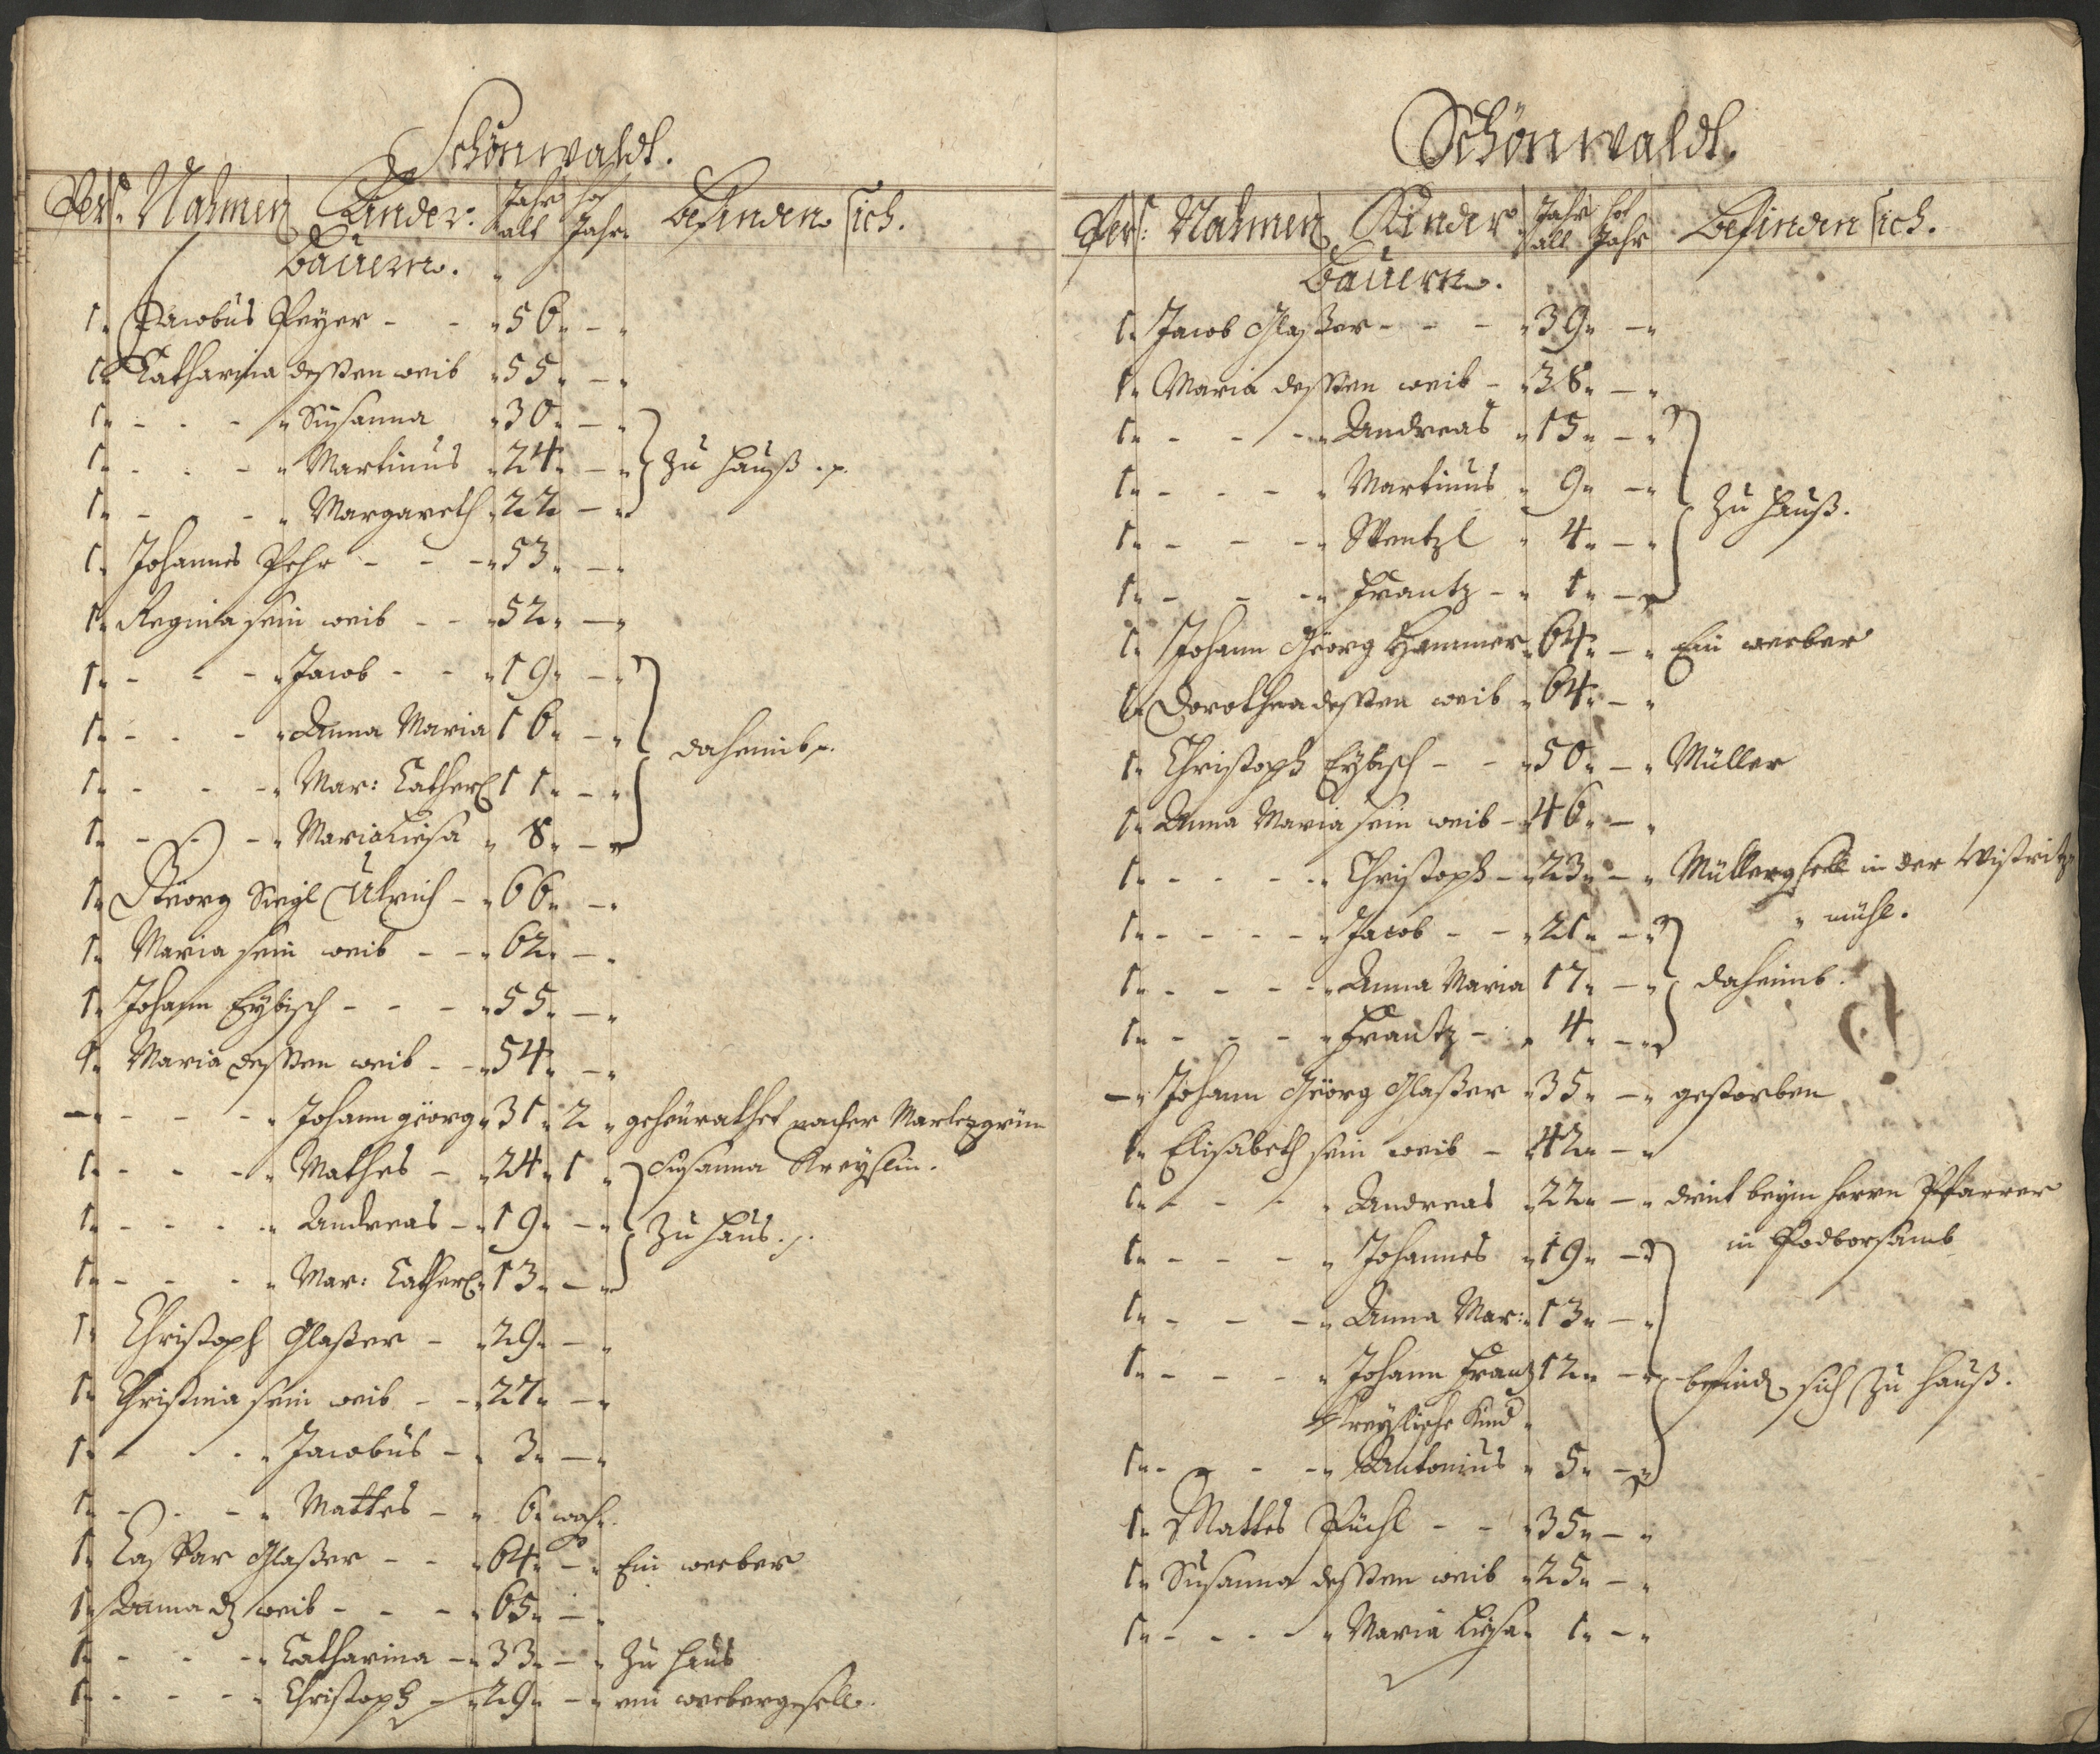 Schönwaldt.
Pers. Nahmen Kinder. Jahr alt hof Jahr Befinden sich.
Bauern.
1. Jacobus Peyer - - 56. -
1. Catharina deßen weib 55. -
1. - - - Susanna 30. -
1. - - - Martinus 24. - Zu Hauß.
1. - - - Margareth 22. -
1. Johannes Pehr - - - 53. -
1. Regina sein weib - - 52. -
1. - - - Jacob - - 19. -
1. - - - Anna Maria 16. -
daheimb.
1. - - - Mar: Catherl 11. -
1. - - - Maria Liesa 8. -
1. Georg Siegl Ulrich - 66. -
1. Maria sein weib - - 62. -
1. Johann Eybisch - - - 55. -
1. Maria deßen weib - - 54. -
- - - - Johann georg 31. 2 geheürathet nacher Marlezgrün
1. - - - Mathes - 24. 1 Susanna Kreyslin.
1. - - - Andreas - 19. - Zu Haus.
1. - - - Mar: Catherl 13. -
1. Christoph Glaßer - 29. -
1. Christina sein weib - - 27. -
1. - - - Jacobus - 3. -
1. - - - Mattes - 6. woch.
1. Caspar Glaßer - - 64. - Ein weeber
1. Anna dß weib - - - 65. -
1. - - - Catharina - 33. - Zu Haus
1. - - - Christoph - 29. - ein weebergesell.
Schönwaldt.
Pers: Nahmen Kinder Jahr alt hof Jahr Befinden sich.
Bauern.
1. Jacob Glaßer - - - 39. -
1. Maria deßen weib - 38. -
1. - - - Andreas 15. -
1. - - - Martinus 9. -
Zu Hauß.
1. - - - Wentzl 4. -
1. - - - Frantz - 1. -
1. Johann Georg Hammer 64. - Ein weeber
1. Dorothea deßen weib 64. -
1. Christoph Eybisch - - 50. - Müller
1. Anna Maria sein weib - 46. -
1. - - - Christoph - 23. - Müllergsell in der Wistritz
mühl.
1. - - - Jacob - - 21. -
1. - - - Anna Maria 17. - daheimb.
1. - - - Frantz - 4. -
- Johann Georg Glaßer 35. - gestorben
1. Elisabeth sein weib - 42. -
1. - - - Andreas 22. - dient beym Herrn Pfarrer
in Podborsamb
1. - - - Johannes 19. -
1. - - - Anna Mar: 13. -
1. - - - Johann Frantz 12. - befind sich Zu Hauß.
Kreylische Kind
1. - - - Antonius 5. -
1. Mattes Püchl - - 35. -
1. Susanna deßen weib 25. -
1. - - - Maria Liesa 1. -